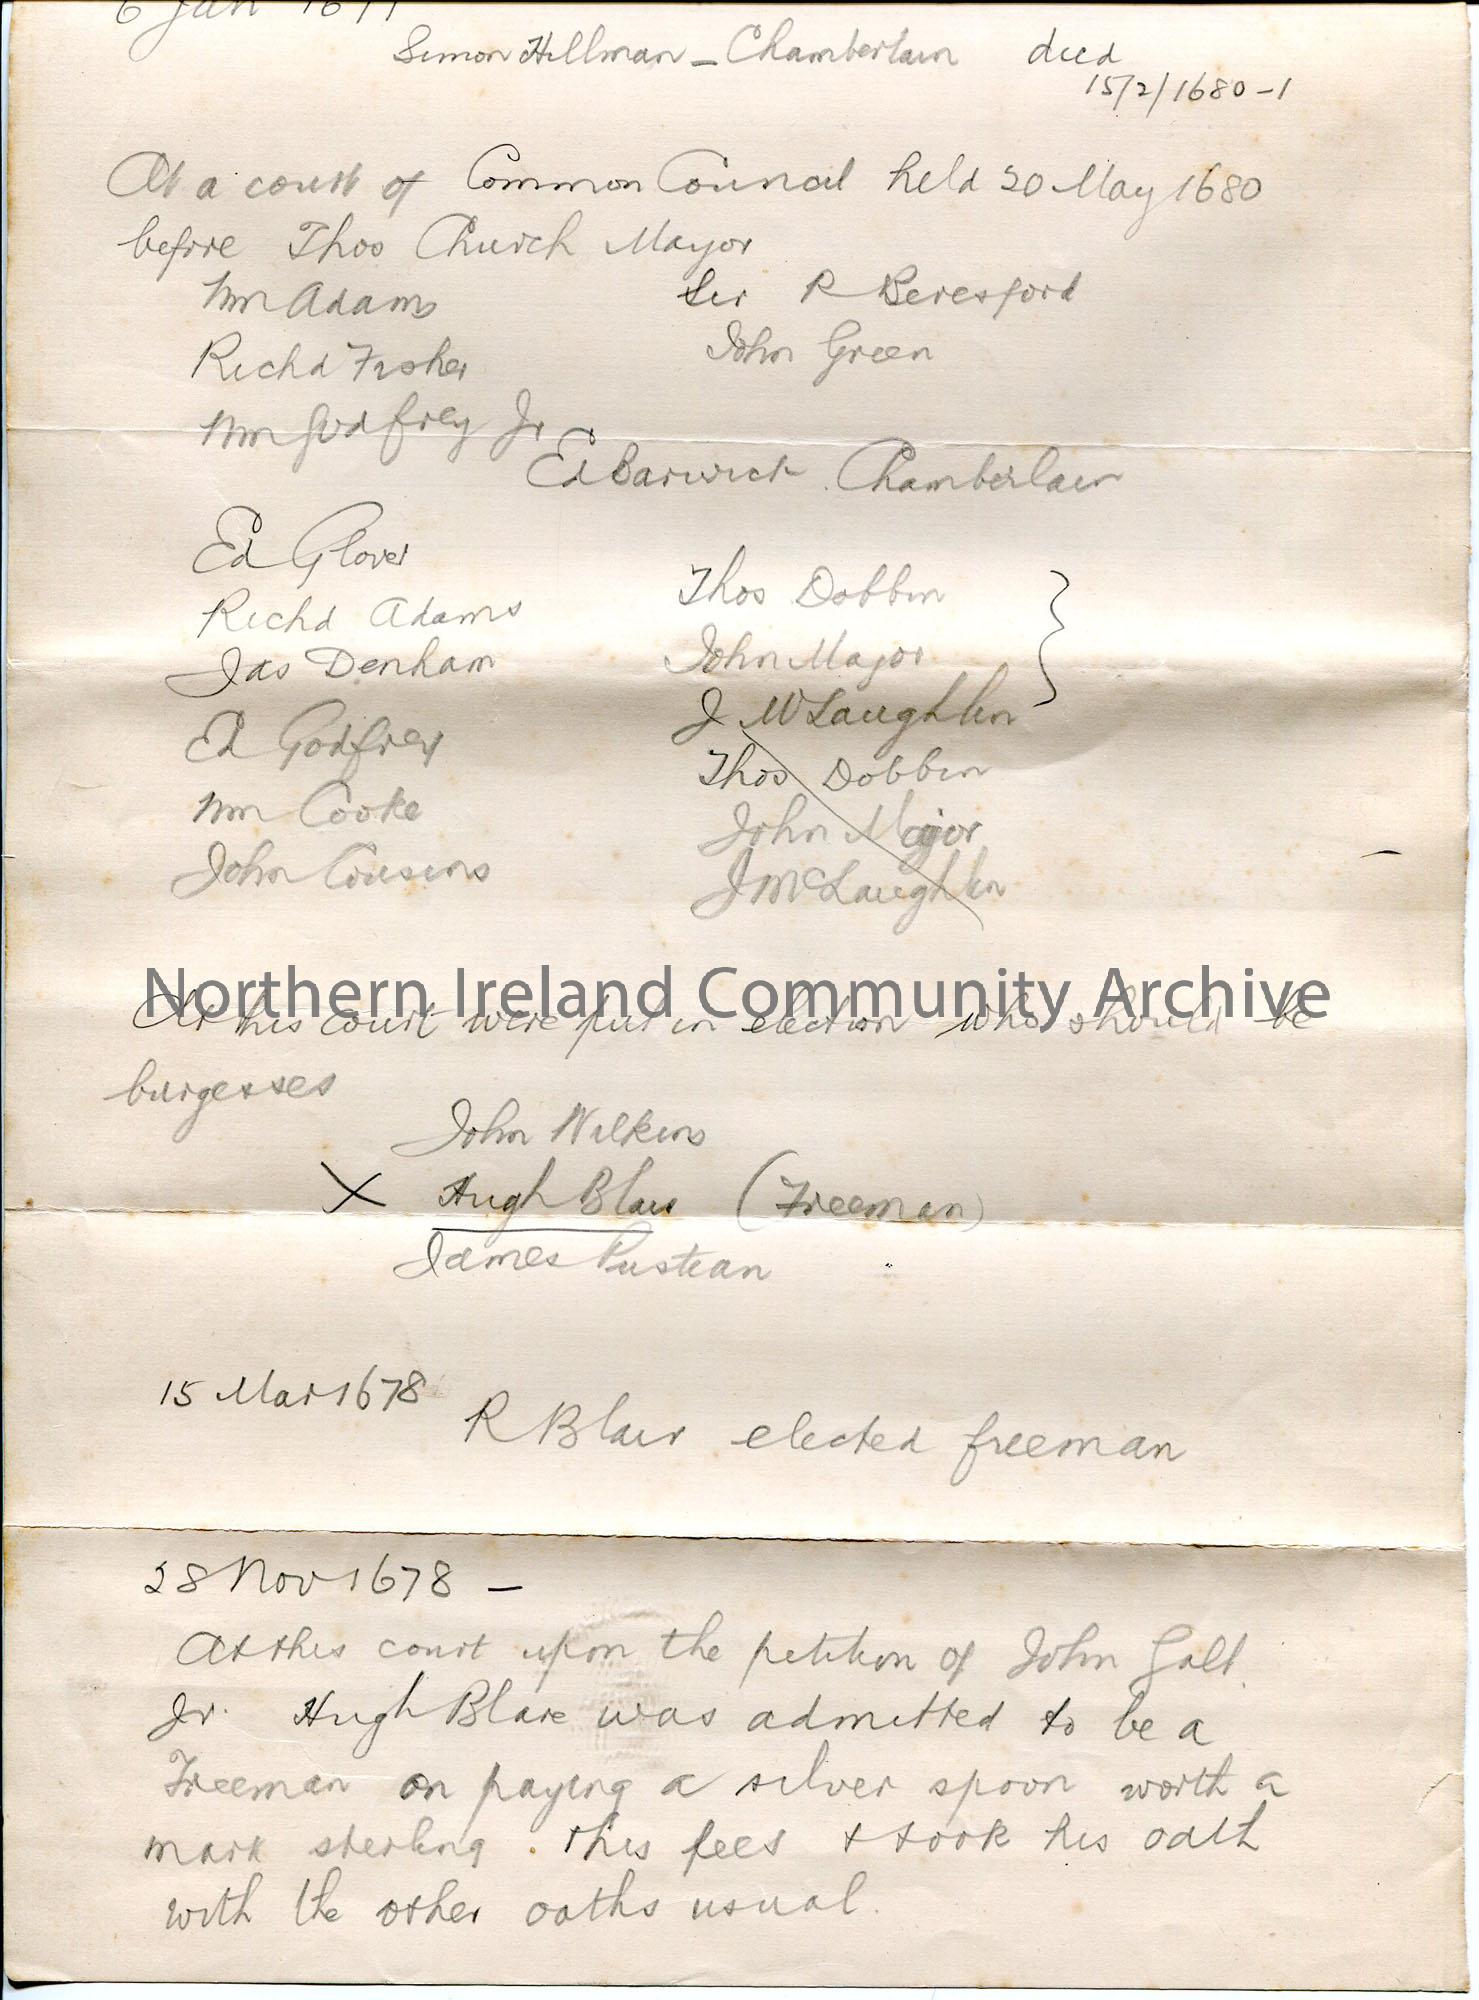 6 Jan 167
Simon Hillman – Chamberlain died
15/2/1680-1
At a court of Common Council held 20 May 1680
before Thos Church Mayor
Wm Adams Sir R Beresford
Richd Fisher John Green
Wm Godfrey Jr
Ed Barwick Chamberlain
Ed Glover
Thos Dobbin
Richd Adams
John Major
Jas Denham
J McLaughlin
Ed Godfrey
Thos Dobbin
Wm Cooke
John Major
John Cousins
J McLaughlin
Northern Ireland Community Archive
At this court were put in election who should be
burgesses
John Wilkins
X Hugh Blair (Freeman)
James
15 Mar 1678
R Blair elected freeman
28 Nov 1678 –
At this court upon the petition of John Galt
Jr. Hugh Blare was admitted to be a
Freeman on paying a silver spoon worth a
mark sterling. this fees & took his oath
with the other oaths usual.